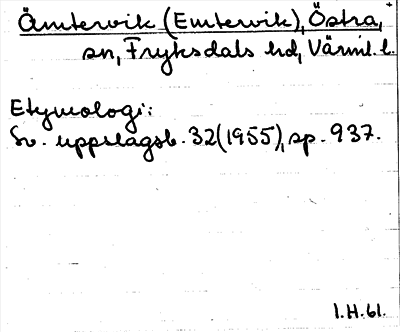 Ämtervik (Emtervik), Östra,
sn, Fryksdals hd, Värml. l.
Etymologi:
Sv. uppslagsb. 32(1955), sp. 937.
I.H.61.